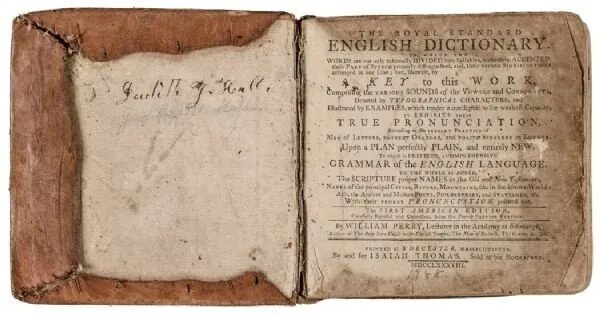 Judith
THE ROYAL STANDARD
ENGLISH DICTIONARY.
IN WHICH THE
WORDS are not only rationally DIVIDED into Syllables, accurately ACCENTED,
their PART of SPEECH properly distinguished, and their various SIGNIFICATIONS
arranged in one Line; but, likewise, by
A KEY to this WORK,
Comprising the VARIOUS SOUNDS of the VOWELS and CONSONANTS,
Denoted by TYPOGRAPHICAL CHARACTERS, and
Illustrated by EXAMPLES, which render it intelligible to the weakest Capacity,
IT EXHIBITS THEIR
TRUE PRONUNCIATION,
According to the PRESENT PRACTICE of
MEN of LETTERS, EMINENT ORATORS, and POLITE SPEAKERS in LONDON.
Upon a PLAN perfectly PLAIN, and entirely NEW.
To which is PREFIXED, a COMPREHENSIVE
GRAMMAR of the ENGLISH LANGUAGE.
TO THE WHOLE IS ADDED,
The SCRIPTURE proper NAMES in the Old and New Testaments,
NAMES of the principal CITIES, RIVERS, MOUNTAINS, &c. in the known World:
Also, the Ancient and Modern POETS, PHILOSOPHERS, and STATESMEN, &c.
With their PROPER PRONUNCIATION pointed out.
The FIRST AMERICAN EDITION,
Carefully Revised and Corrected, from the FOURTH BRITISH EDITION.
By WILLIAM PERRY, Lecturer in the Academy at Edinburgh,
Author of The Only Sure Guide to the English Tongue, The Man of Business, &c.
PRINTED AT WORCESTER, MASSACHUSETTS,
By and for ISAIAH THOMAS. Sold at his BOOKSTORE.
MDCCLXXXVIII.
1788